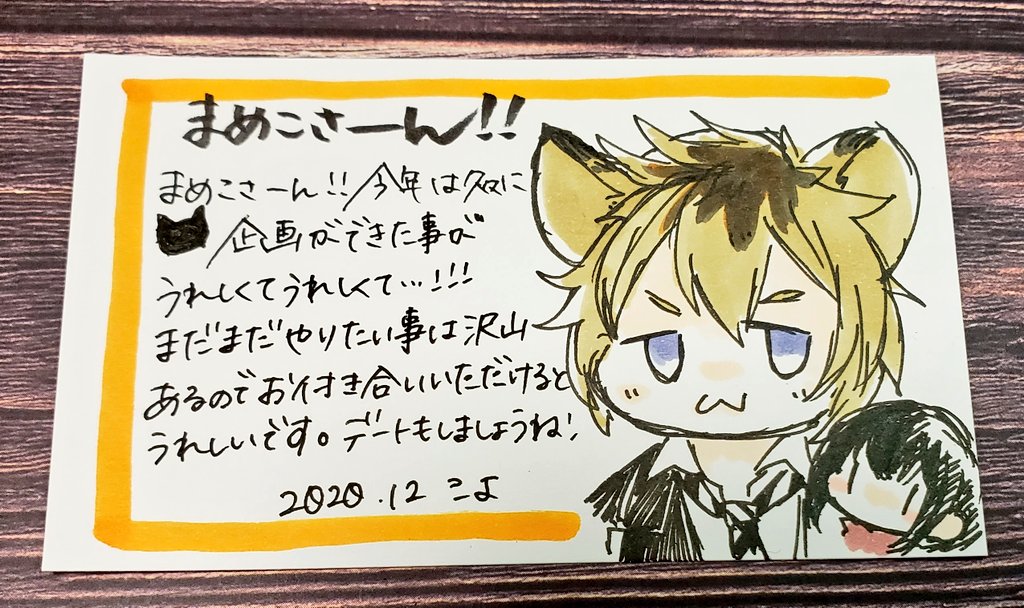 まめこさーん!!
まめこさーん!! 今年は久々に
企画ができた事が
うれしくてうれしくて…!!!
まだまだやりたい事は沢山
あるのでお付き合いいただけると
うれしいです。デートもしましょうね!
2020.12 こよ